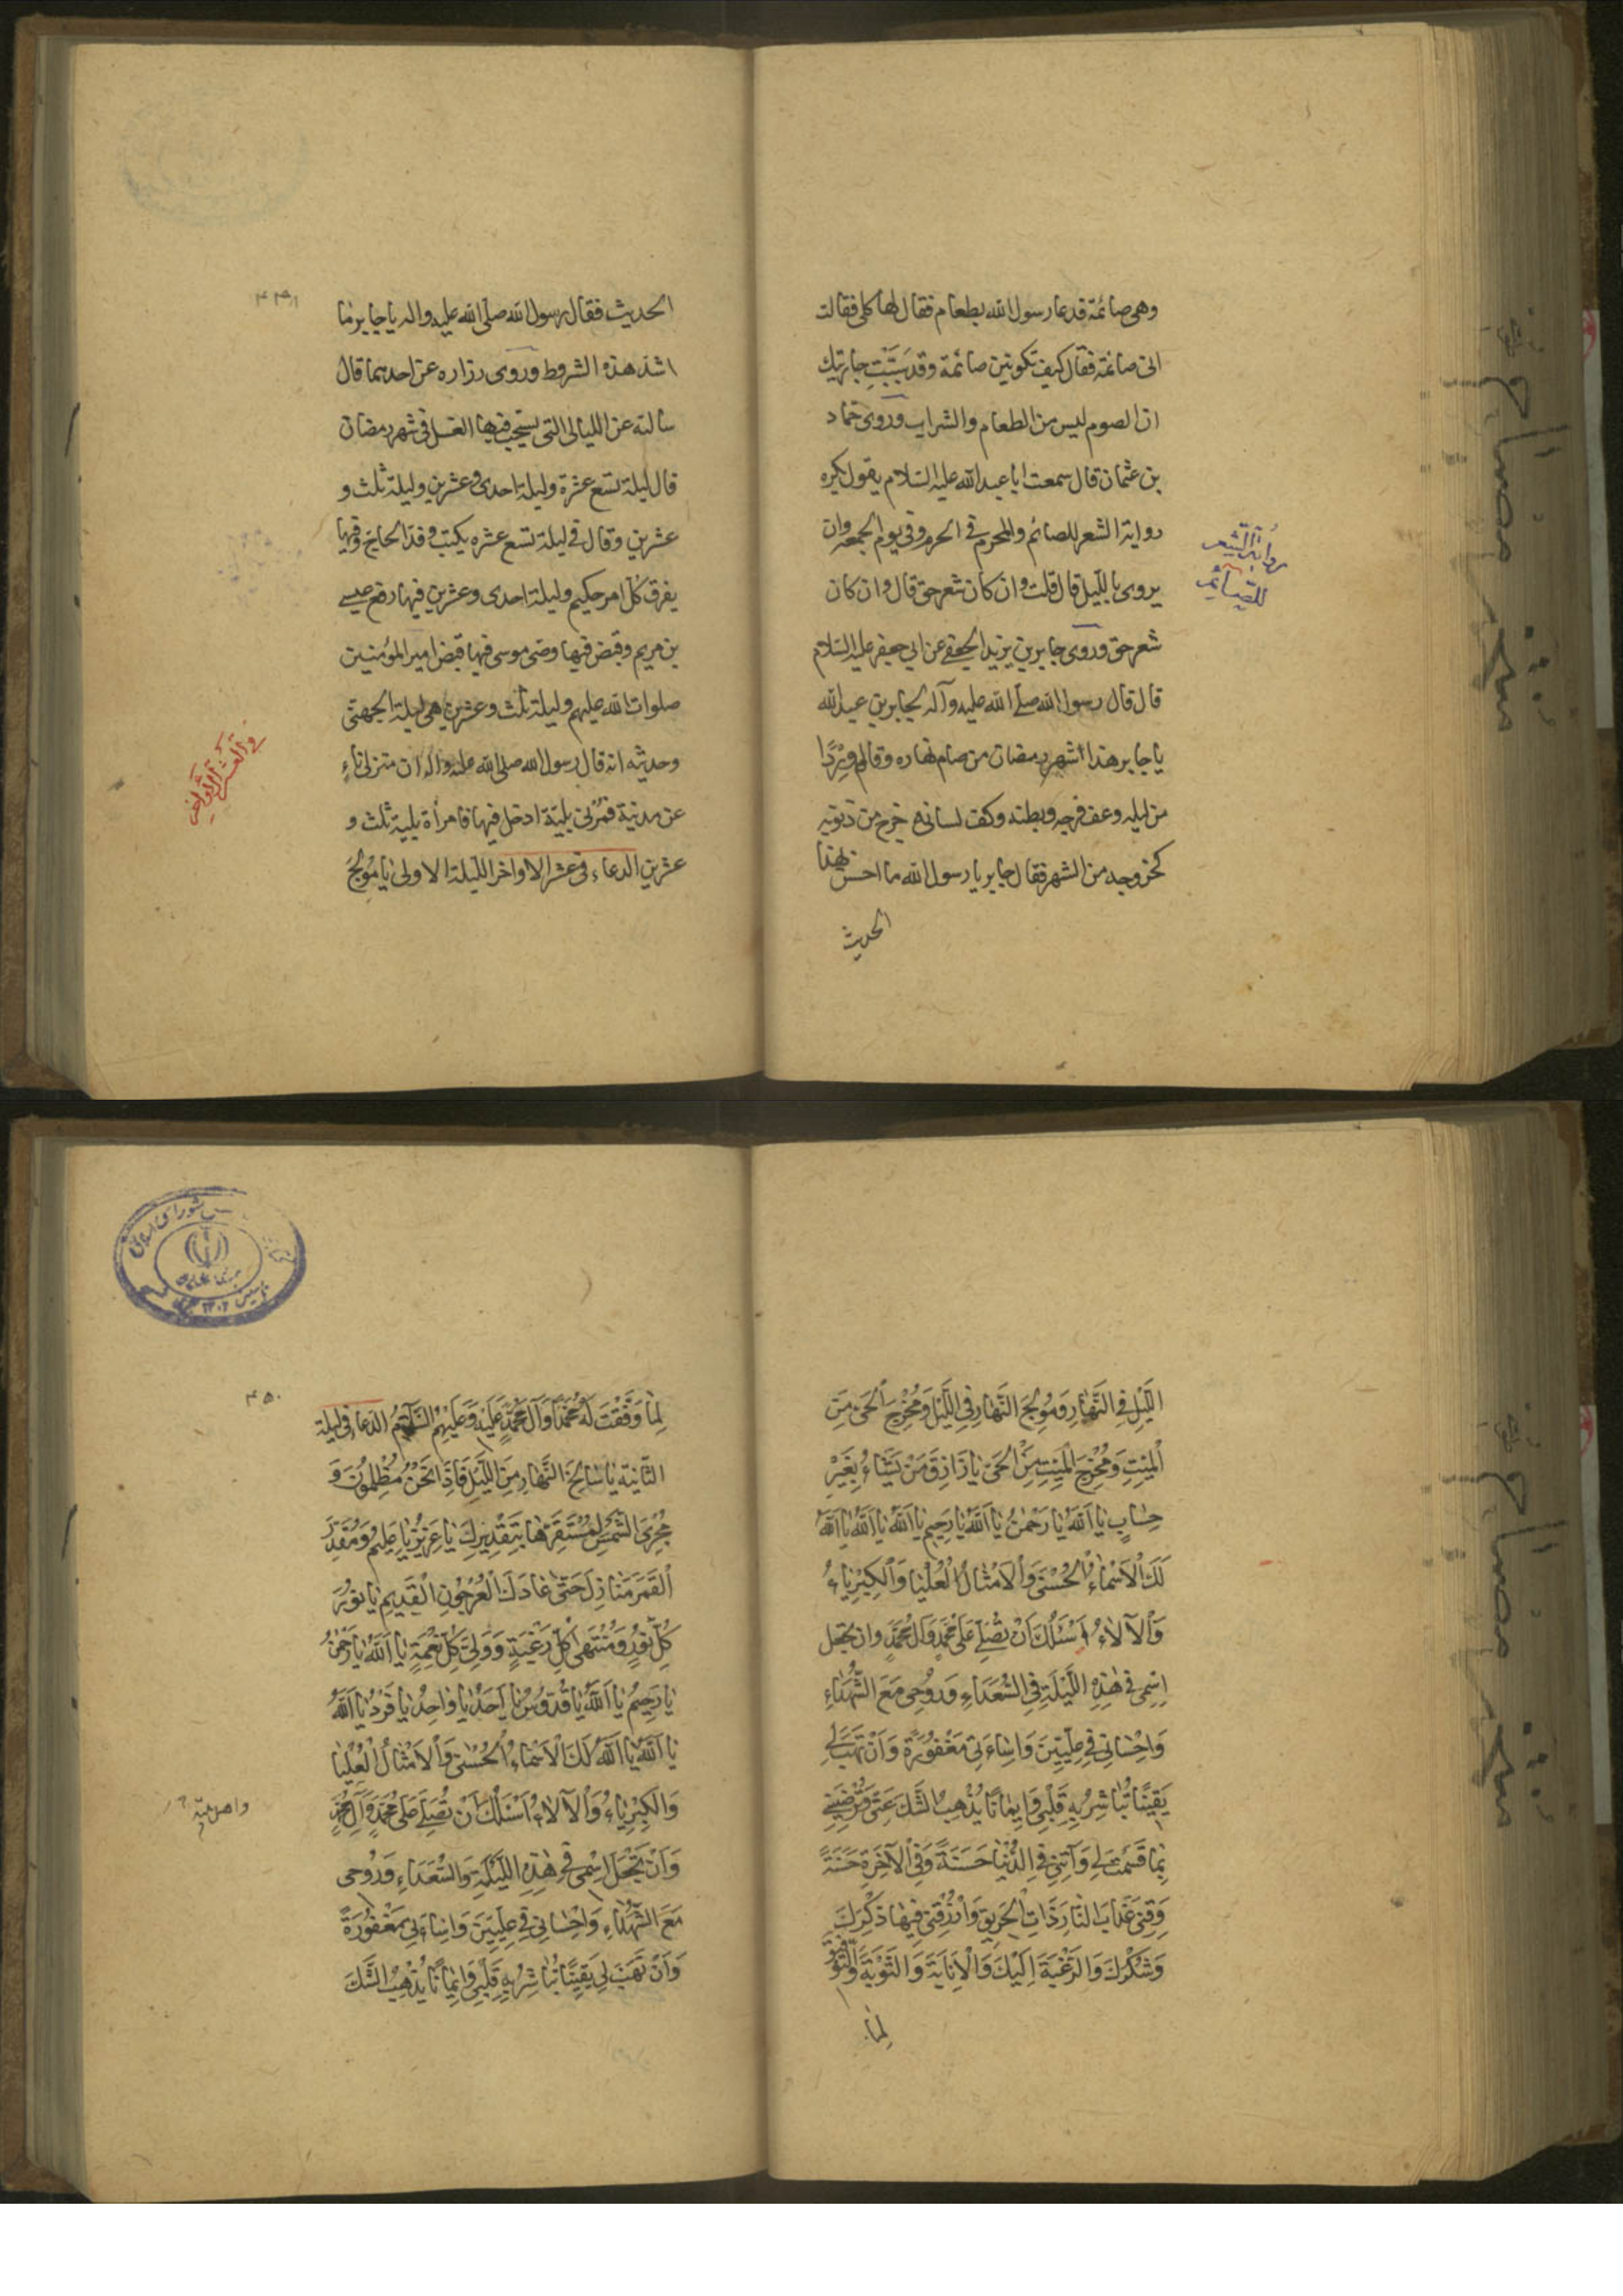 وهی صائمة فدعا رسول الله بطعام فقال لها کلی فقالت
انی صائمة فقال کیف تکونین صائمة وقد سَبَبْتِ جاریتك
ان الصوم لیس من الطعام والشراب وروی حماد
بن عثمان قال سمعت ابا عبد الله علیه السلام یقول یکره
روایة الشعر للصائم والمحرم فی الحرم وفی یوم الجمعه وان
یروی باللیل قال قلت وان کان شعر حق قال وان کان
شعر حق وروی جابر بن یزید الجعفی عن ابی جعفر علیه السلام
قال قال رسول الله صلی الله علیه وآله لجابر بن عبد الله
یا جابر هذا شهر رمضان من صام نهاره وقام وِرْدًا
من لیله وعف فرجه وبطنه وکف لسانه خرج من ذنوبه
کخروجه من الشهر فقال جابر یا رسول الله ما احسن هذا
الحدیث
روایة الشعر
للصائم
۴۴۹
الحدیث فقال رسول الله صلی الله علیه واله یا جابر ما
اشد هذه الشروط وروی زراره عن احدهما قال
سالته عن اللیالی التی یستحب فیها الغسل فی شهر رمضان
قال لیلة تسع عشرة ولیلة احدی وعشرین ولیلة ثلث و
عشرین وقال فی لیلة تسع عشره یکتب وفد الحاج وفیها
یفرق کل امر حکیم ولیلة احدی وعشرین فیها رفع عیسی
بن مریم وقبض فیها وصی موسی فیها قبض امیر المؤمنین
صلوات الله علیهم ولیلة ثلث وعشرین هی لیلة الجهنی
وحدیثه انه قال رسول الله صلی الله علیه واله ان منزلی ناءٍ
عن مدینة فمُرْنی بلیلة ادخل فیها فامرأة بلیلة ثلث و
عشرین الدعاء فی عشر الاواخر اللیلة الاولی یا مُولِجَ
اللَّیْلِ فِی النَّهٰارِ وَمُولِجَ النَّهٰارِ فِی اللَّیْلِ وَمُخْرِجَ الْحَیِّ مِنَ
الْمَیِّتِ وَمُخْرِجَ الْمَیِّتِ مِنَ الْحَیِّ یٰا رٰازِقَ مَنْ یَشٰاءُ بِغَیْرِ
حِسٰابٍ یٰا اَللّٰهُ یٰا رَحْمٰنُ یٰا اَللّٰهُ یٰا رَحِیمُ یٰا اَللّٰهُ یٰا اَللّٰهُ یٰا اَللّٰهُ
لَكَ الْاَسْمٰاءُ الْحُسْنٰی وَالْاَمْثٰالُ الْعُلْیٰا وَالْکِبْرِیٰاءُ
وَالْآلاٰءُ اَسْئَلُكَ اَنْ تُصَلِّیَ عَلٰی مُحَمَّدٍ وَآلِ مُحَمَّدٍ وان تجعل
اِسْمِی فِی هٰذِهِ اللَّیْلَةِ فِی السُّعَدٰاءِ وَرُوحِی مَعَ الشُّهَدٰاءِ
وَاِحْسٰانِی فِی عِلِّیِّینَ وَاِسٰاءَتِی مَغْفُورَةً وَاَنْ تَهَبَ لِی
یَقِینًا تُبٰاشِرُ بِهِ قَلْبِی وَاِیمٰانًا یُذْهِبُ الشَّكَّ عَنِّی وَتُرْضِیَنِی
بِمٰا قَسَمْتَ لِی وَآتِنِی فِی الدُّنْیٰا حَسَنَةً وَفِی الْآخِرَةِ حَسَنَةً
وَقِنِی عَذٰابَ النّٰارِ ذٰاتِ الْحَرِیقِ وَارْزُقْنِی فِیهٰا ذِکْرَكَ
وَشُکْرَكَ وَالرَّغْبَةَ اِلَیْكَ وَالْاِنٰابَةَ وَالتَّوْبَةَ وَالتَّوْفِیقَ
لِمٰا
۴۵۰
لِمٰا وَفَّقْتَ لَهُ مُحَمَّدًا وَآلَ مُحَمَّدٍ عَلَیْهِ وَعَلَیْهِمُ السَّلٰامُ الدعا فی لیلة
الثّانیة یٰا سٰالِخَ النَّهٰارِ مِنَ اللَّیْلِ فَاِذٰا نَحْنُ مُظْلِمُونَ وَ
مُجْرِیَ الشَّمْسِ لِمُسْتَقَرِّهٰا بِتَقْدِیرِكَ یٰا عَزِیزُ یٰا عَلِیمُ وَمُقَدِّرَ
الْقَمَرِ مَنٰازِلَ حَتّٰی عٰادَ كَالْعُرْجُونِ الْقَدِیمِ یٰا نُورَ
کُلِّ نُورٍ وَمُنْتَهٰی کُلِّ رَغْبَةٍ وَوَلِیَّ کُلِّ نِعْمَةٍ یٰا اَللّٰهُ یٰا رَحْمٰنُ
یٰا رَحِیمُ یٰا اَللّٰهُ یٰا قُدُّوسُ یٰا اَحَدُ یٰا وٰاحِدُ یٰا فَرْدُ یٰا اَللّٰهُ
یٰا اَللّٰهُ یٰا اَللّٰهُ لَكَ الْاَسْمٰاءُ الْحُسْنٰی وَالْاَمْثٰالُ الْعُلْیٰا
وَالْکِبْرِیٰاءُ وَالْآلاٰءُ اَسْئَلُكَ اَنْ تُصَلِّیَ عَلٰی مُحَمَّدٍ وَآلِ مُحَمَّدٍ
وَاَنْ تَجْعَلَ اِسْمِی فِی هٰذِهِ اللَّیْلَةِ وَالسُّعَدٰاءِ وَرُوحِی
مَعَ الشُّهَدٰاءِ وَاِحْسٰانِی فِی عِلِّیِّینَ وَاِسٰاءَتِی مَغْفُورَةً
وَاَنْ تَهَبَ لِی یَقِینًا تُبٰاشِرُ بِهِ قَلْبِی وَاِیمٰانًا یُذْهِبُ الشَّكَّ